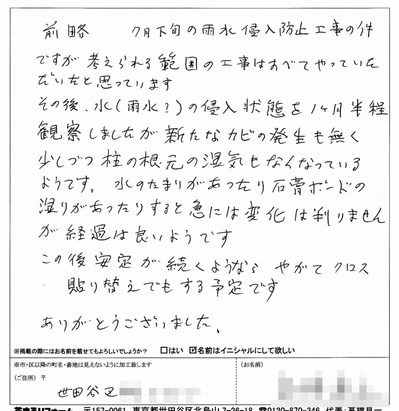 前略　7月下旬の雨水侵入防止工事の件
ですが考えられる範囲の工事はすべてやっていた
だいたと思っています
その後、水(雨水?)の侵入状態を1ヶ月半程
観察しましたが新たなカビの発生も無く
少しづつ柱の根元の湿気もなくなっている
ようです。水のたまりがあったり石膏ボードの
湿りがあったりすると急には変化は判りません
が経過は良いようです
この後安定が続くようなら やがてクロス
貼り替えでもする予定です
ありがとうございました。
※掲載の際にはお名前を載せてもよろしいでしょうか? □はい ☑名前はイニシャルにして欲しい
※市・区以降の町名・番地は見えないように加工致します
(ご住所) 〒
(お名前)
世田谷区